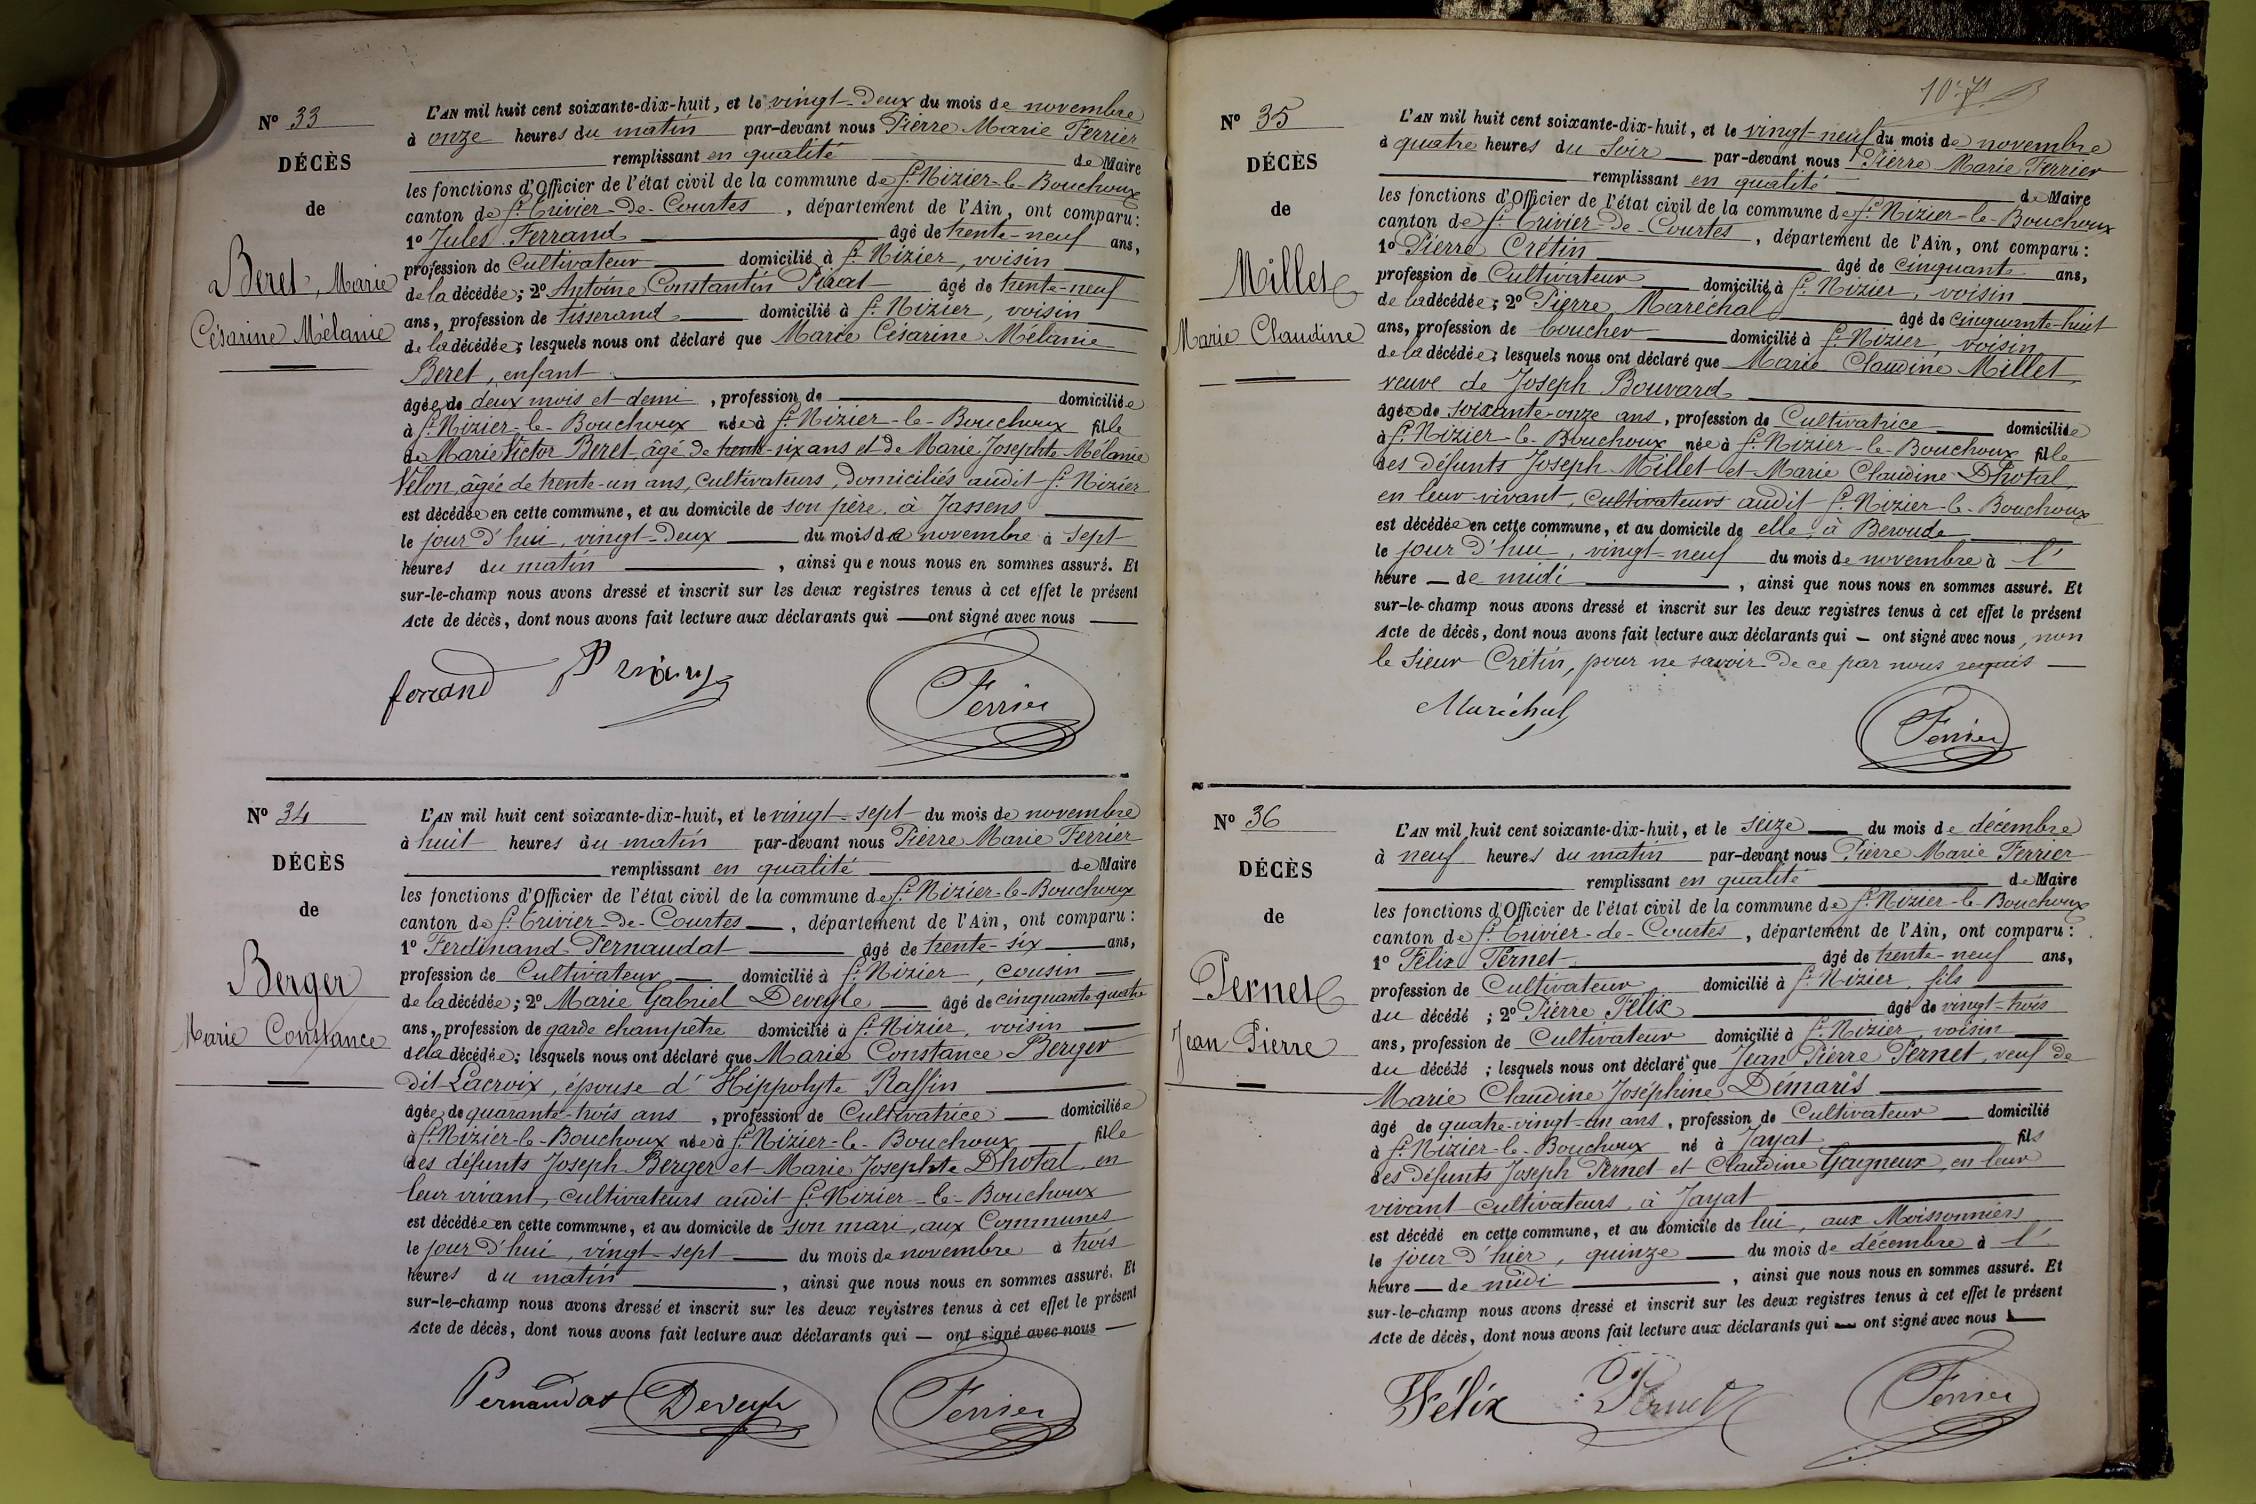 N° 33
DÉCÈS
de
Beret, Marie
Césarine Mélanie
L'AN mil huit cent soixante-dix-huit, et le vingt-deux du mois de novembre
à onze heures du matin par-devant nous Pierre Marie Ferrier
remplissant en qualité de Maire
les fonctions d'Officier de l'état civil de la commune de St Nizier-le-Bouchoux
canton de St Trivier-de-Courtes, département de l'Ain, ont comparu:
1° Jules Ferrand âgé de trente-neuf ans,
profession de Cultivateur domicilié à St Nizier, voisin
de la décédée; 2° Antoine Constantin Pirat âgé de trente-neuf
ans, profession de tisserand domicilié à St Nizier, voisin
de la décédée; lesquels nous ont déclaré que Marie Césarine Mélanie
Beret, enfant
âgée de deux mois et demi, profession de domiciliée
à St Nizier-le-Bouchoux née à St Nizier-le-Bouchoux fille
de Marie Victor Beret âgé de trente-six ans et de Marie Josephte Mélanie
Vélon, âgée de trente-un ans, cultivateurs, domiciliés audit St Nizier
est décédée en cette commune, et au domicile de son père, à Jassens
le jour d'hui, vingt-deux du mois de novembre à sept
heures du matin, ainsi que nous nous en sommes assuré. Et
sur-le-champ nous avons dressé et inscrit sur les deux registres tenus à cet effet le présent
Acte de décès, dont nous avons fait lecture aux déclarants qui ont signé avec nous
ferrand
Ferrier
N° 34
DÉCÈS
de
Berger
Marie Constance
L'AN mil huit cent soixante-dix-huit, et le vingt-sept du mois de novembre
à huit heures du matin par-devant nous Pierre Marie Ferrier
remplissant en qualité de Maire
les fonctions d'Officier de l'état civil de la commune de St Nizier-le-Bouchoux
canton de St Trivier-de-Courtes, département de l'Ain, ont comparu:
1° Ferdinand Pernaudat âgé de trente-six ans,
profession de Cultivateur domicilié à St Nizier, cousin
de la décédée; 2° Marie Gabriel Deveyle âgé de cinquante-quatre
ans, profession de garde champêtre domicilié à St Nizier, voisin
de la décédée; lesquels nous ont déclaré que Marie Constance Berger
dit Lacroix, épouse d'Hippolyte Raffin
âgée de quarante-trois ans, profession de Cultivatrice domiciliée
à St Nizier-le-Bouchoux née à St Nizier-le-Bouchoux fille
des défunts Joseph Berger et Marie Josephte Dhotal, en
leur vivant, cultivateurs audit St Nizier-le-Bouchoux
est décédée en cette commune, et au domicile de son mari, aux Communes
le jour d'hui, vingt-sept du mois de novembre à trois
heures du matin, ainsi que nous nous en sommes assuré. Et
sur-le-champ nous avons dressé et inscrit sur les deux registres tenus à cet effet le présent
Acte de décès, dont nous avons fait lecture aux déclarants qui — ont signé avec nous —
Pernaudat Deveyle Ferrier
N° 35
DÉCÈS
de
Millet
Marie Claudine
L'AN mil huit cent soixante-dix-huit, et le vingt-neuf du mois de novembre
à quatre heures du soir par-devant nous Pierre Marie Ferrier
remplissant en qualité de Maire
les fonctions d'Officier de l'état civil de la commune de St Nizier-le-Bouchoux
canton de St Trivier-de-Courtes, département de l'Ain, ont comparu:
1° Pierre Crétin âgé de cinquante ans,
profession de Cultivateur domicilié à St Nizier, voisin
de la décédée; 2° Pierre Maréchal âgé de cinquante-huit
ans, profession de boucher domicilié à St Nizier, voisin
de la décédée; lesquels nous ont déclaré que Marie Claudine Millet,
veuve de Joseph Bouvard
âgée de soixante-onze ans, profession de Cultivatrice domiciliée
à St Nizier-le-Bouchoux née à St Nizier-le-Bouchoux fille
des défunts Joseph Millet et Marie Claudine Dhotal,
en leur vivant, cultivateurs audit St Nizier-le-Bouchoux
est décédée en cette commune, et au domicile de elle, à Beroude
le jour d'hui, vingt-neuf du mois de novembre à l'
heure — de midi, ainsi que nous nous en sommes assuré. Et
sur-le-champ nous avons dressé et inscrit sur les deux registres tenus à cet effet le présent
Acte de décès, dont nous avons fait lecture aux déclarants qui — ont signé avec nous, non
le sieur Crétin, pour ne savoir de ce par nous requis —
Maréchal Ferrier
N° 36
DÉCÈS
de
Pernet
Jean Pierre
L'AN mil huit cent soixante-dix-huit, et le seize du mois de décembre
à neuf heures du matin par-devant nous Pierre Marie Ferrier
remplissant en qualité de Maire
les fonctions d'Officier de l'état civil de la commune de St Nizier-le-Bouchoux
canton de St Trivier-de-Courtes, département de l'Ain, ont comparu:
1° Félix Pernet âgé de trente-neuf ans,
profession de Cultivateur domicilié à St Nizier, fils
du décédé; 2° Pierre Félix âgé de vingt-trois
ans, profession de Cultivateur domicilié à St Nizier, voisin
du décédé; lesquels nous ont déclaré que Jean Pierre Pernet, veuf de
Marie Claudine Joséphine Démaris
âgé de quatre-vingt-un ans, profession de Cultivateur domicilié
à St Nizier-le-Bouchoux né à Jayat fils
des défunts Joseph Pernet et Claudine Gagneux, en leur
vivant cultivateurs, à Jayat
est décédé en cette commune, et au domicile de lui, aux Moissonniers
le jour d'hier, quinze du mois de décembre à l'
heure — de midi, ainsi que nous nous en sommes assuré. Et
sur-le-champ nous avons dressé et inscrit sur les deux registres tenus à cet effet le présent
Acte de décès, dont nous avons fait lecture aux déclarants qui — ont signé avec nous
Félix Pernet Ferrier